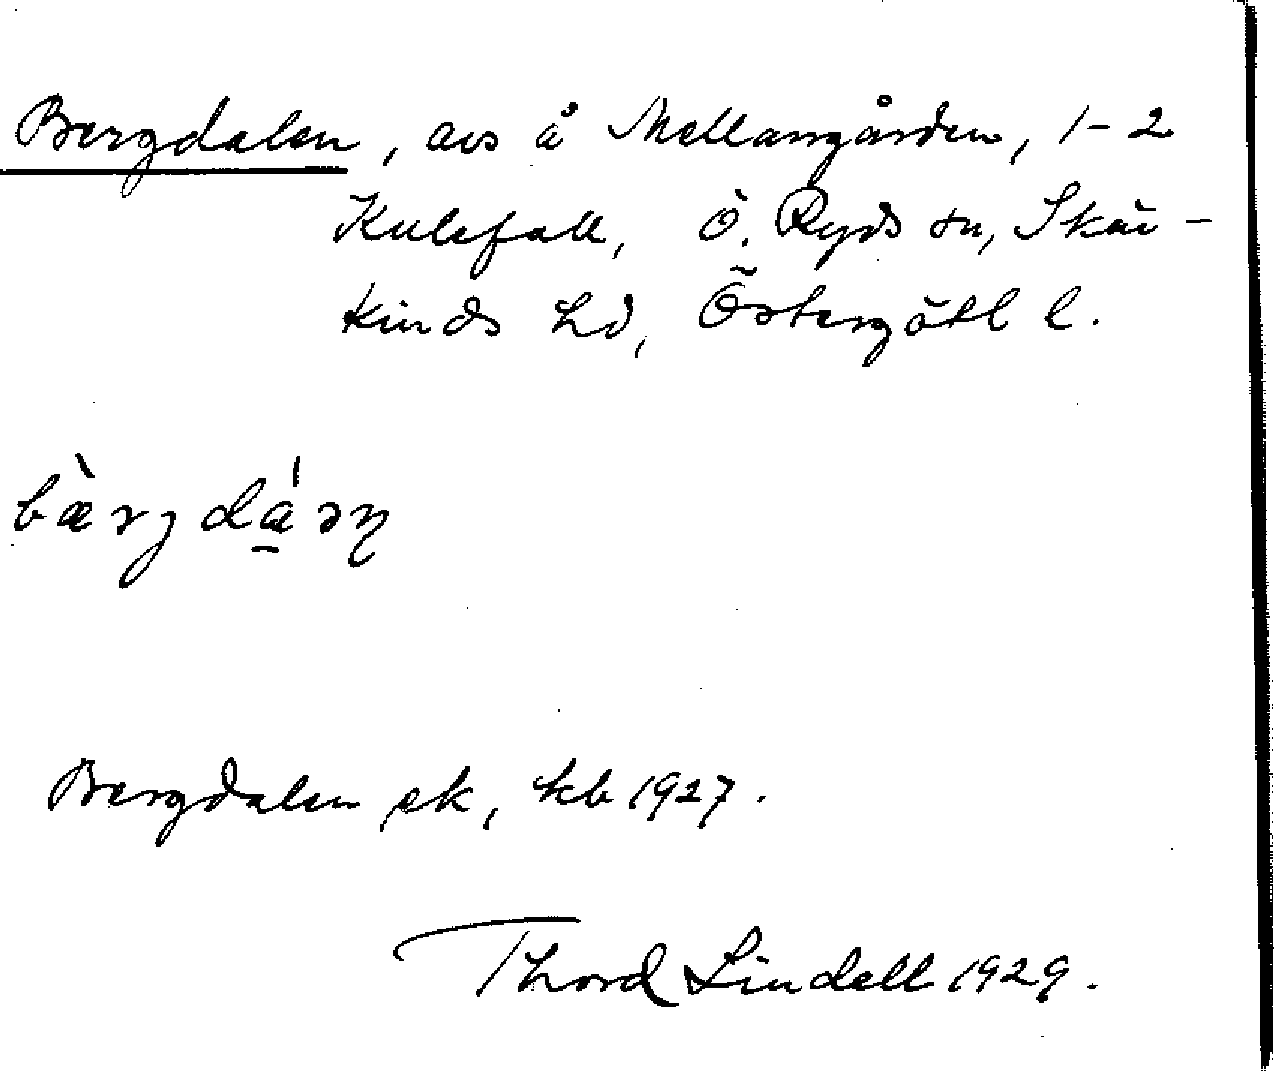 Bergdalen, avs å Mellangården, 1-2
Kulefall, Ö. Ryds sn, Skär-
kinds hd, Östergötl l.
bæ̀rjdá̱ən
Bergdalen ek, kb 1927.
Thord Lindell 1929.